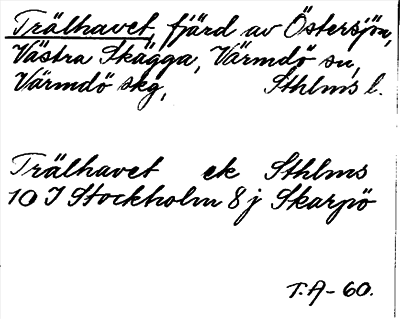 Trälhavet, fjärd av Östersjön,
Västra Skägga, Värmdö sn,
Värmdö skg, Sthlms l.
Trälhavet ek Sthlms
10 I Stockholm 8 j Skarpö
T.A-60.